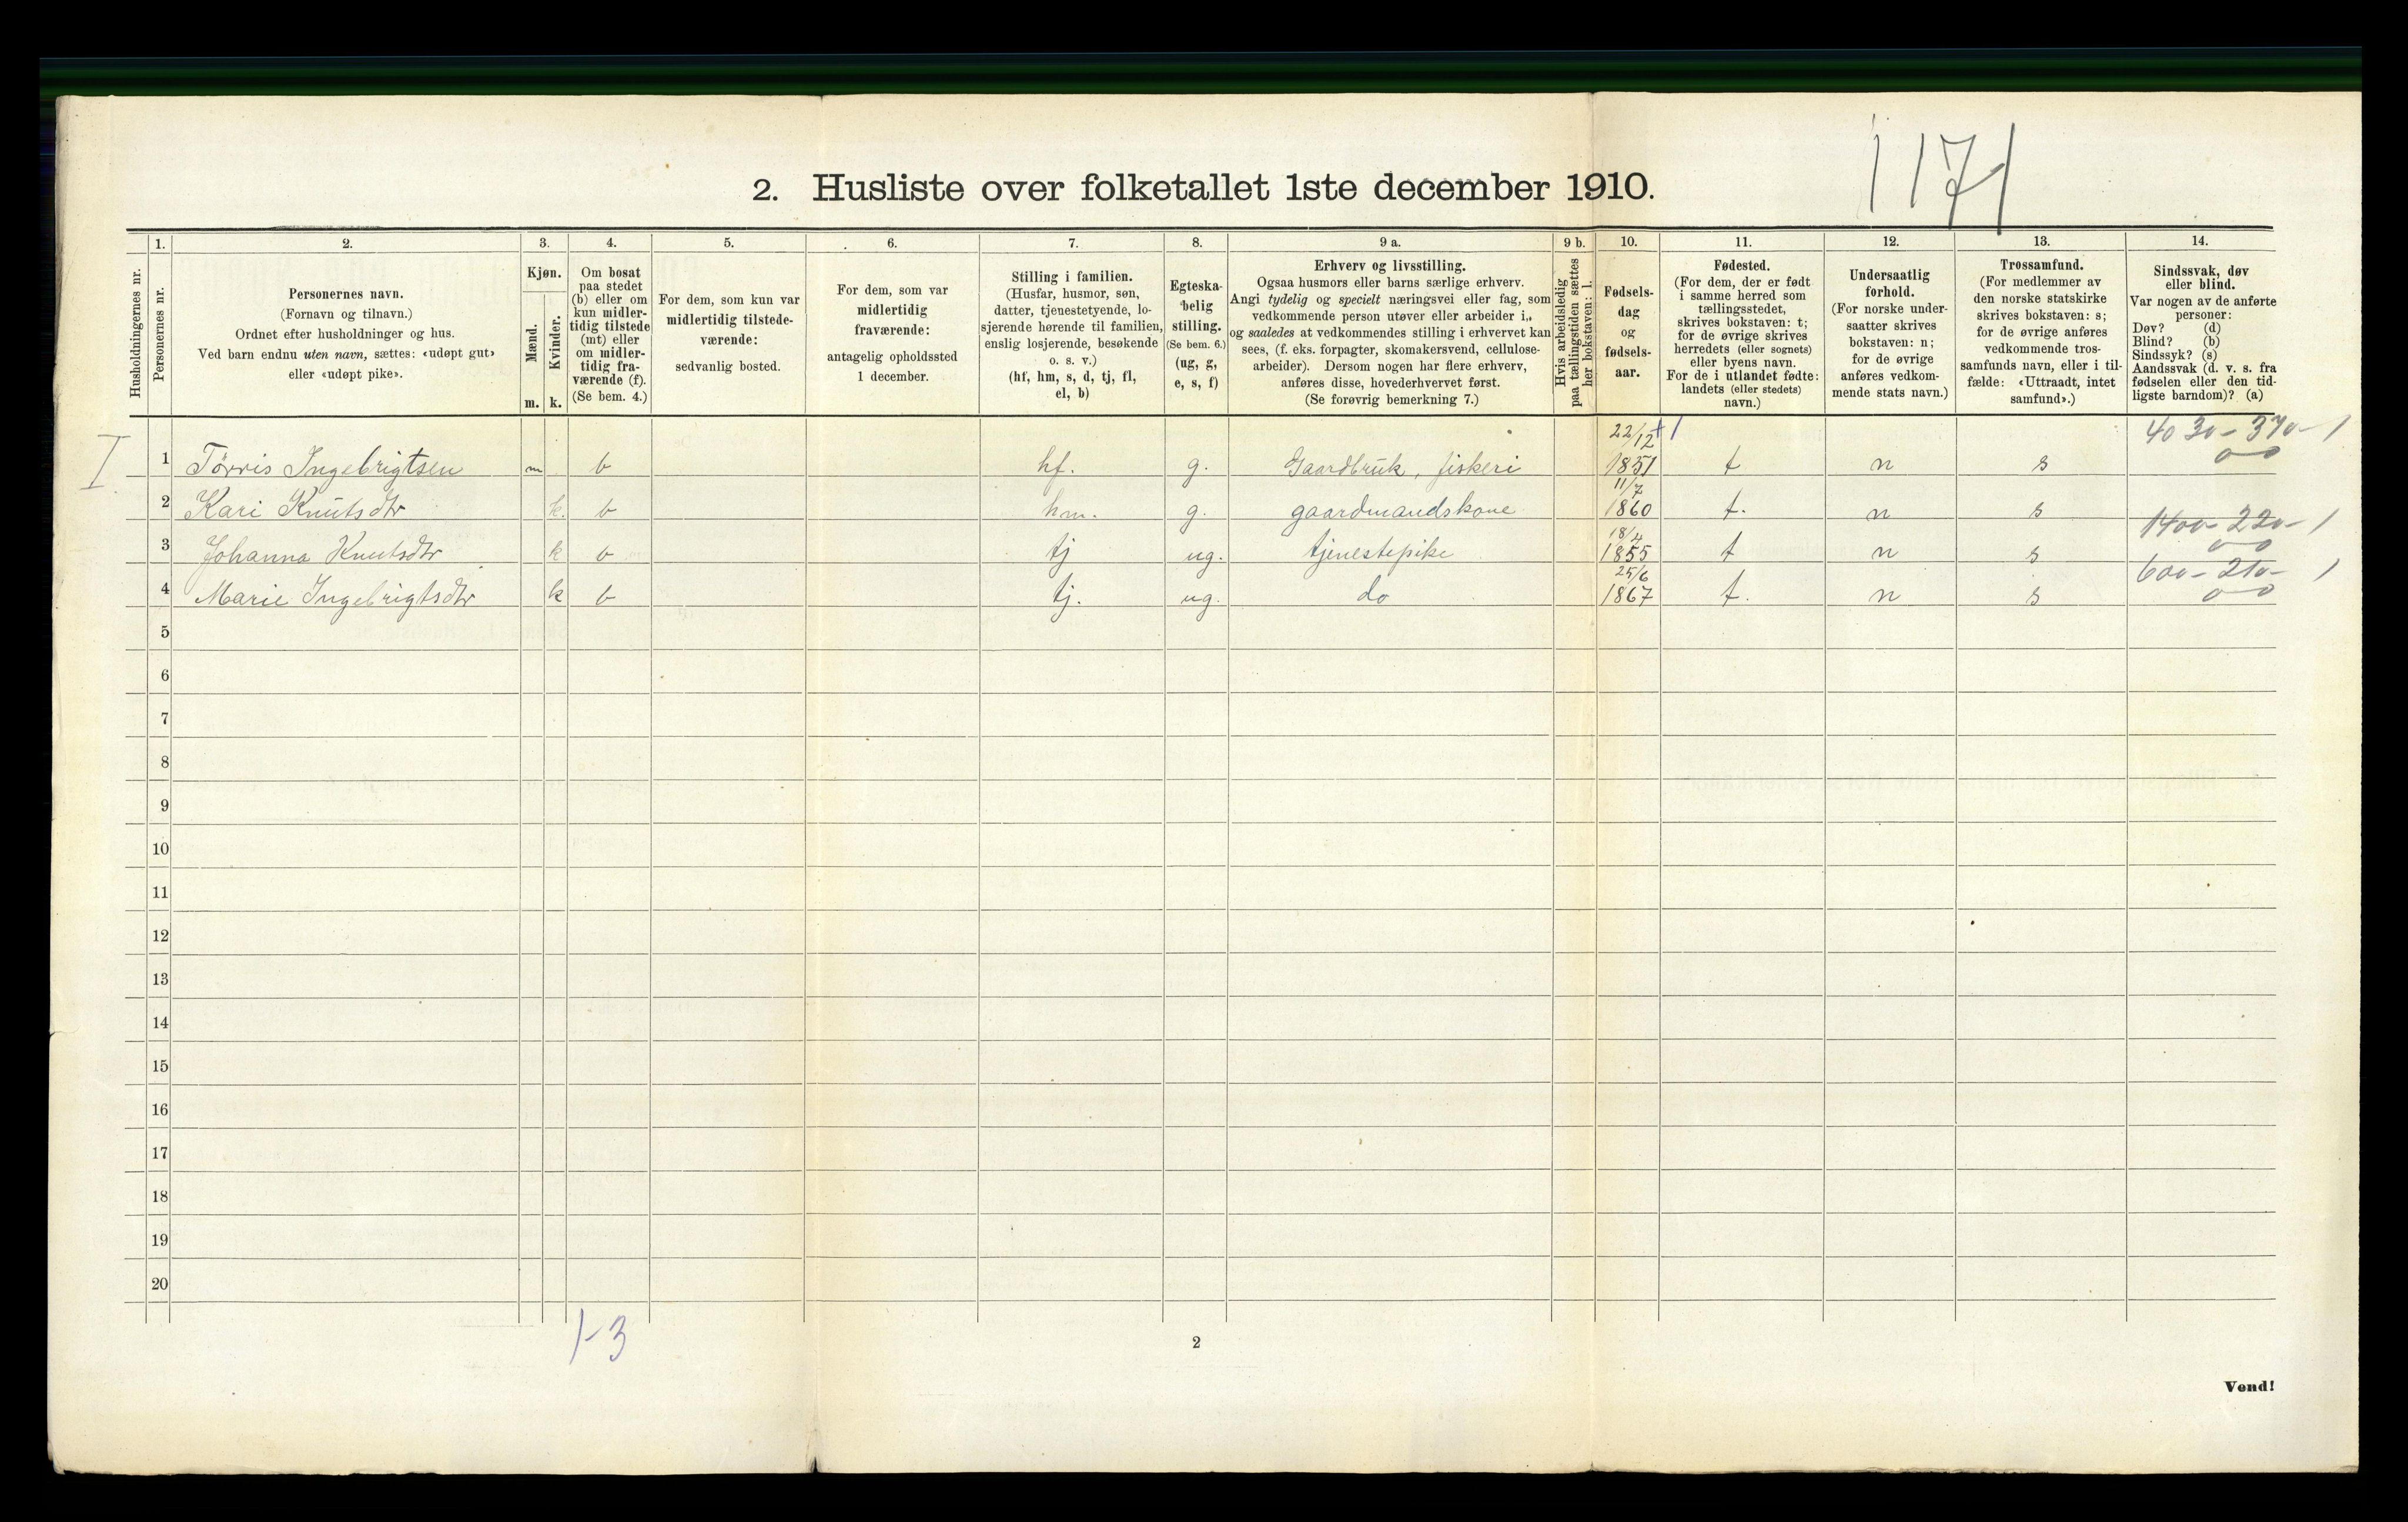 1171
2. Husliste over folketallet 1ste december 1910.
Husholdningernes nr.
1. Personernes nr.
2. Personernes navn.
(Fornavn og tilnavn.)
Ordnet efter husholdninger og hus.
Ved barn endnu uten navn, sættes: «udøpt gut»
eller «udøpt pike».
3. Kjøn.
Mænd. m.
Kvinder. k.
4. Om bosat
paa stedet
(b) eller om
kun midler-
tidig tilstede
(mt) eller
om midler-
tidig fra-
værende (f).
(Se bem. 4.)
5. For dem, som kun var
midlertidig tilstede-
værende:
sedvanlig bosted.
6. For dem, som var
midlertidig
fraværende:
antagelig opholdssted
1 december.
7. Stilling i familien.
(Husfar, husmor, søn,
datter, tjenestetyende, lo-
sjerende hørende til familien,
enslig losjerende, besøkende
o. s. v.)
(hf, hm, s, d, tj, fl,
el, b)
8. Egteska-
belig
stilling.
(Se bem. 6.)
(ug, g,
e, s, f)
9 a. Erhverv og livsstilling.
Ogsaa husmors eller barns særlige erhverv.
Angi tydelig og specielt næringsvei eller fag, som
vedkommende person utøver eller arbeider i,
og saaledes at vedkommendes stilling i erhvervet kan
sees, (f. eks. forpagter, skomakersvend, cellulose-
arbeider). Dersom nogen har flere erhverv,
anføres disse, hovederhvervet først.
(Se forøvrig bemerkning 7.)
9 b. Hvis arbeidsledig
paa tællingstiden sættes
her bokstaven: l.
10. Fødsels-
dag
og
fødsels-
aar.
11. Fødested.
(For dem, der er født
i samme herred som
tællingsstedet,
skrives bokstaven: t;
for de øvrige skrives
herredets (eller sognets)
eller byens navn.
For de i utlandet fødte:
landets (eller stedets)
navn.)
12. Undersaatlig
forhold.
(For norske under-
saatter skrives
bokstaven: n;
for de øvrige
anføres vedkom-
mende stats navn.)
13. Trossamfund.
(For medlemmer av
den norske statskirke
skrives bokstaven: s;
for de øvrige anføres
vedkommende tros-
samfunds navn, eller i til-
fælde: «Uttraadt, intet
samfund».)
14. Sindssvak, døv
eller blind.
Var nogen av de anførte
personer:
Døv? (d)
Blind? (b)
Sindssyk? (s)
Aandssvak (d. v. s. fra
fødselen eller den tid-
ligste barndom)? (a)
4030 - 370 - 1
I 1 Tørris Ingebrigtsen m b hf. g. Gaardbruk, fiskeri 22/12 1851 t n s 0-0
2 Kari Knutsdtr k. b hm. g. gaardmandskone 11/7 1860 t. n s
1400 - 220 - 1
3 Johanna Knutsdtr k b tj ug. tjenestepike 18/4 1855 t n s 0-0
600 - 210 - 1
4 Marie Ingebrigtsdtr k b tj. ug. do 25/6 1867 t. n s 0-0
5
6
7
8
9
10
11
12
13
14
15
16
17
18
19
20
1-3
2
Vend!